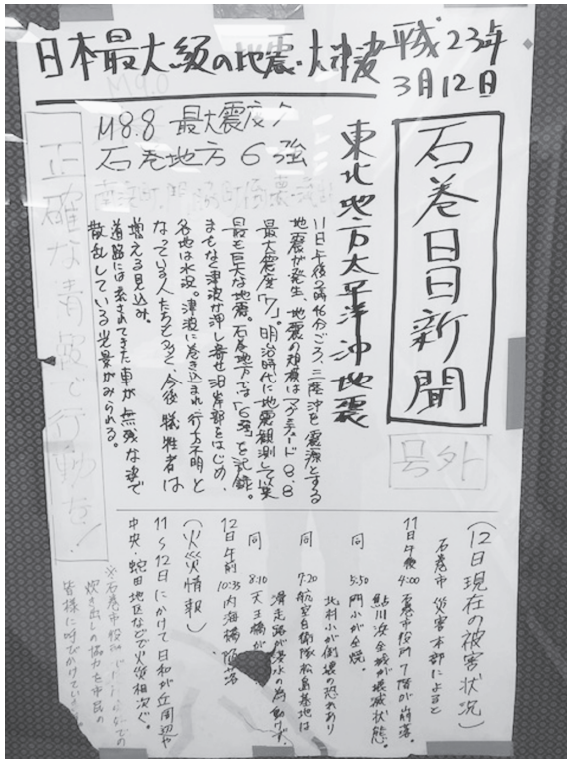 日本最大級の地震・大津波
平成23年
3月12日
石巻日日新聞
号外
東北地方太平洋沖地震
M8.8 最大震度7
石巻地方 6強
11日午後2時46分ごろ、三陸沖を震源とする
地震が発生、地震の規模はマグニチュード8.8
最大震度「7」。明治時代に地震観測して以来
最も巨大な地震。石巻地方では「6強」を記録。
まもなく津波が押し寄せ沿岸部をはじめ、
各地は水没。津波に巻き込まれ行方不明と
なっている人たちも多く、今後犠牲者は
増える見込み。
道路には流されてきた車が無残な姿で
散乱している光景がみられる。
正確な情報で行動を!
(12日現在の被害状況)
石巻市 災害本部によると
11日午後4:00 石巻市役所7階が崩落。
鮎川浜全域が壊滅状態。
同 5:50 門小が全焼。
北村小が倒壊の恐れあり
同 7:20 航空自衛隊松島基地は
滑走路が浸水の為動けず。
同 8:10 天王橋が
12日午前10:35 内海橋 陥落
(火災情報)
11〜12日にかけて日和が丘周辺や
中央、蛇田地区などで火災相次ぐ。
※石巻市役所
炊き出しの協力を市民の
皆様に呼びかけて